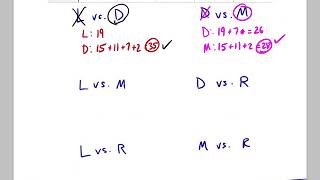 L vs. D
L: 19
D: 15+11+7+2 = 35 ✓
D vs. M
D: 19+7 = 26
M: 15+11+2 = 28 ✓
L vs. M
D vs. R
L vs. R
M vs. R